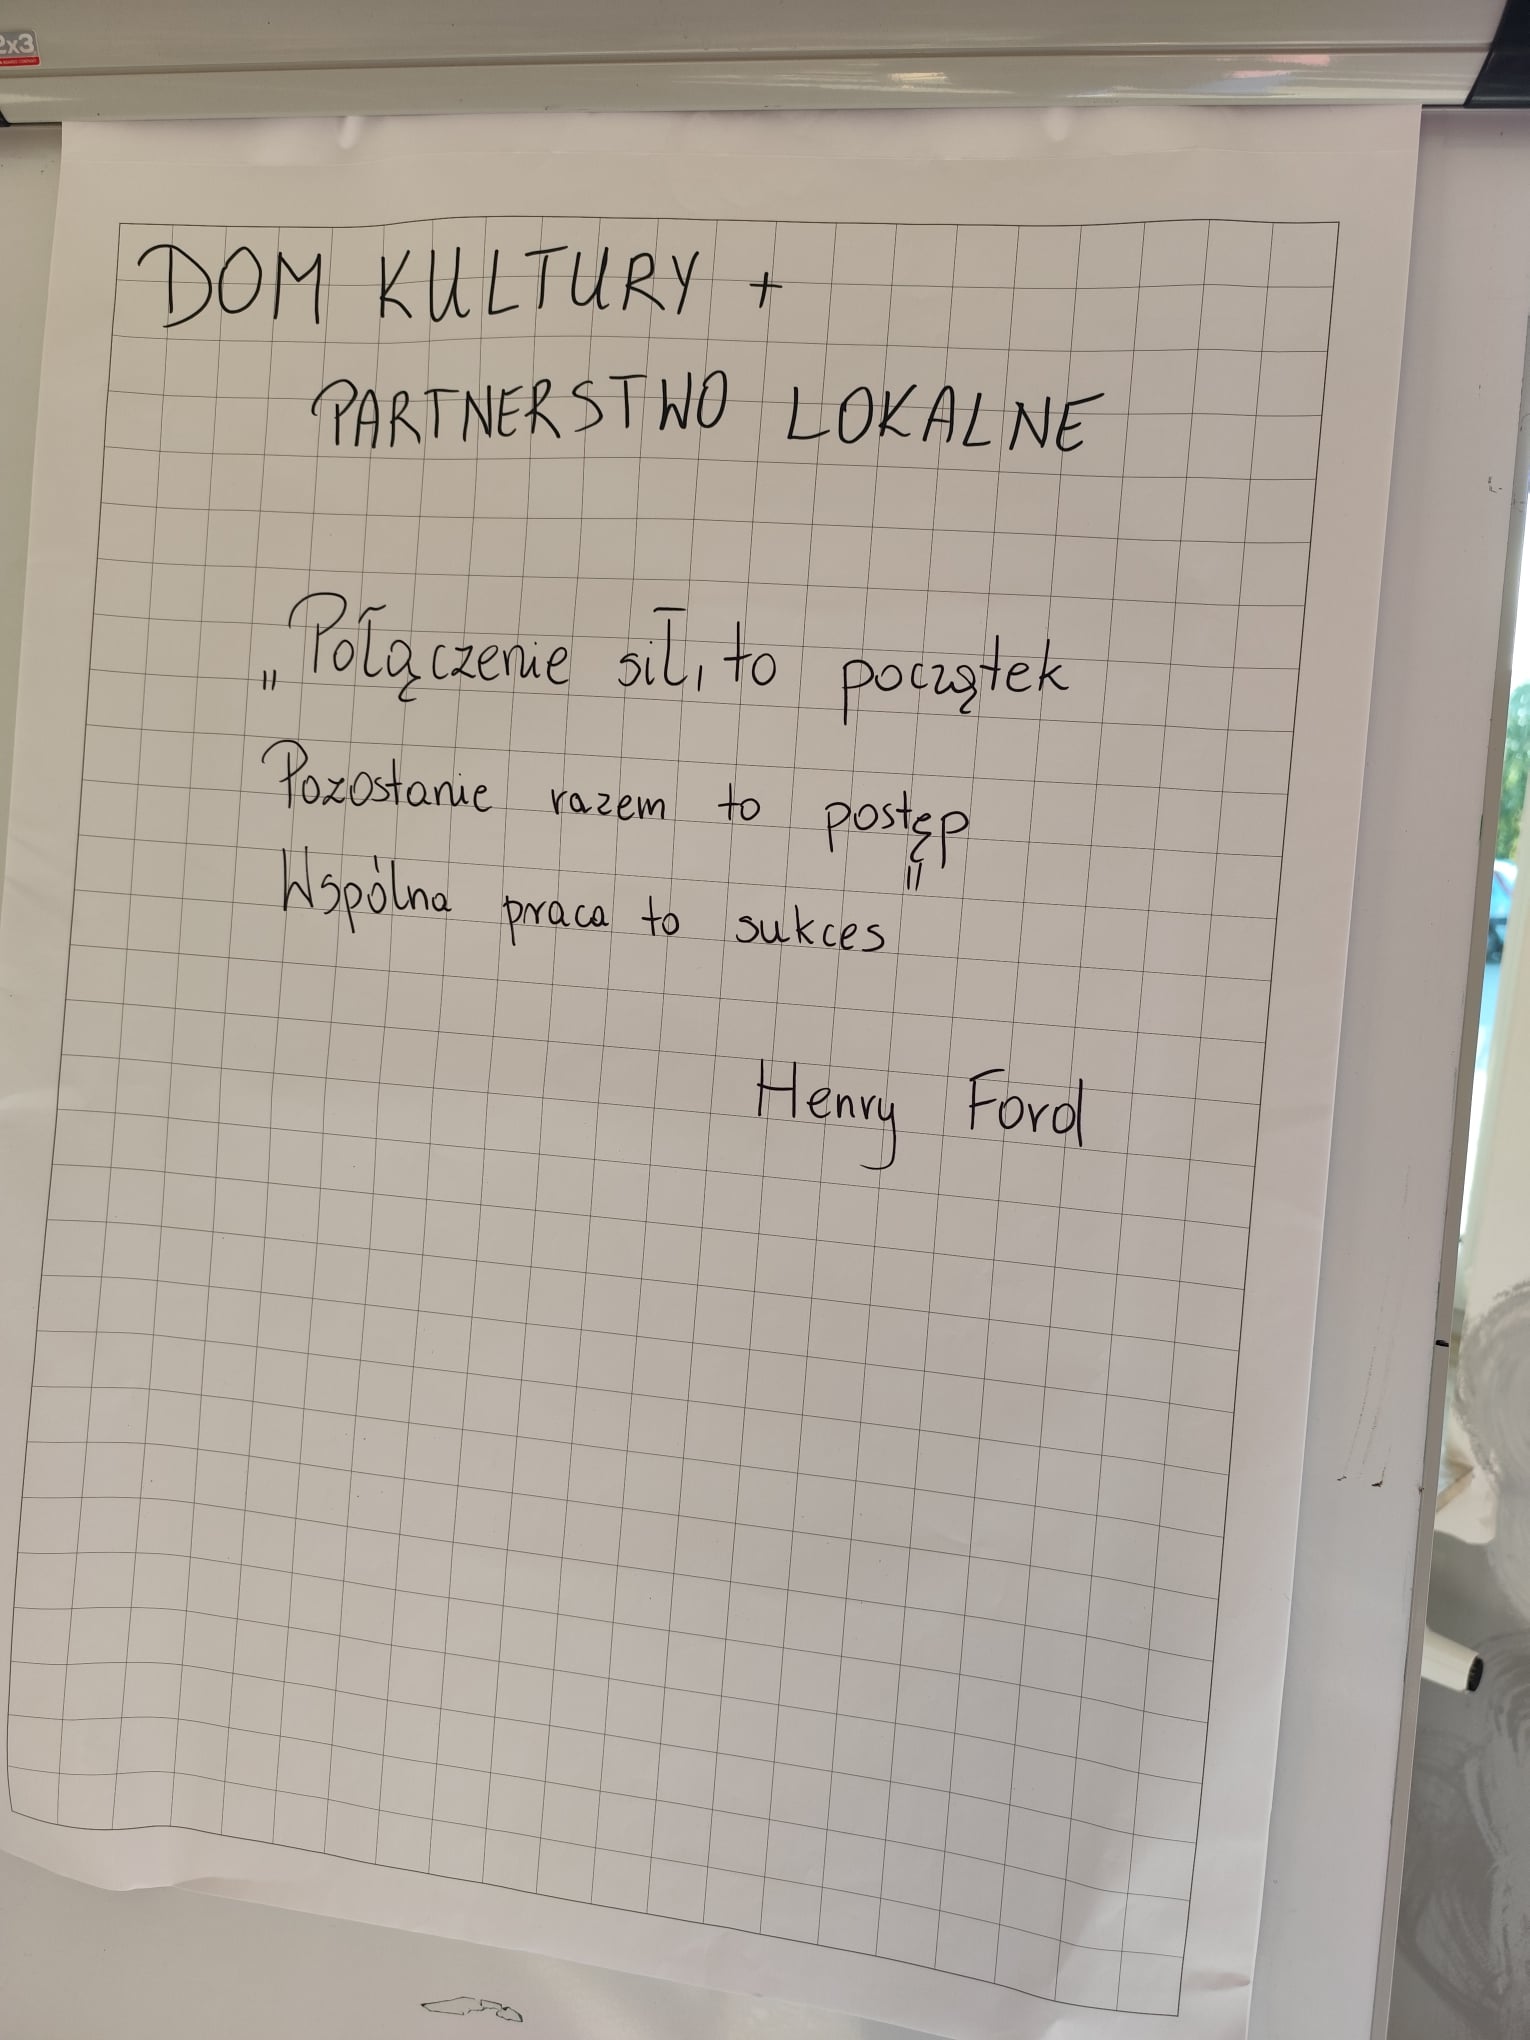 2x3
DOM KULTURY +
PARTNERSTWO LOKALNE
„Połączenie sił, to początek
Pozostanie razem to postęp
Wspólna praca to sukces"
Henry Ford